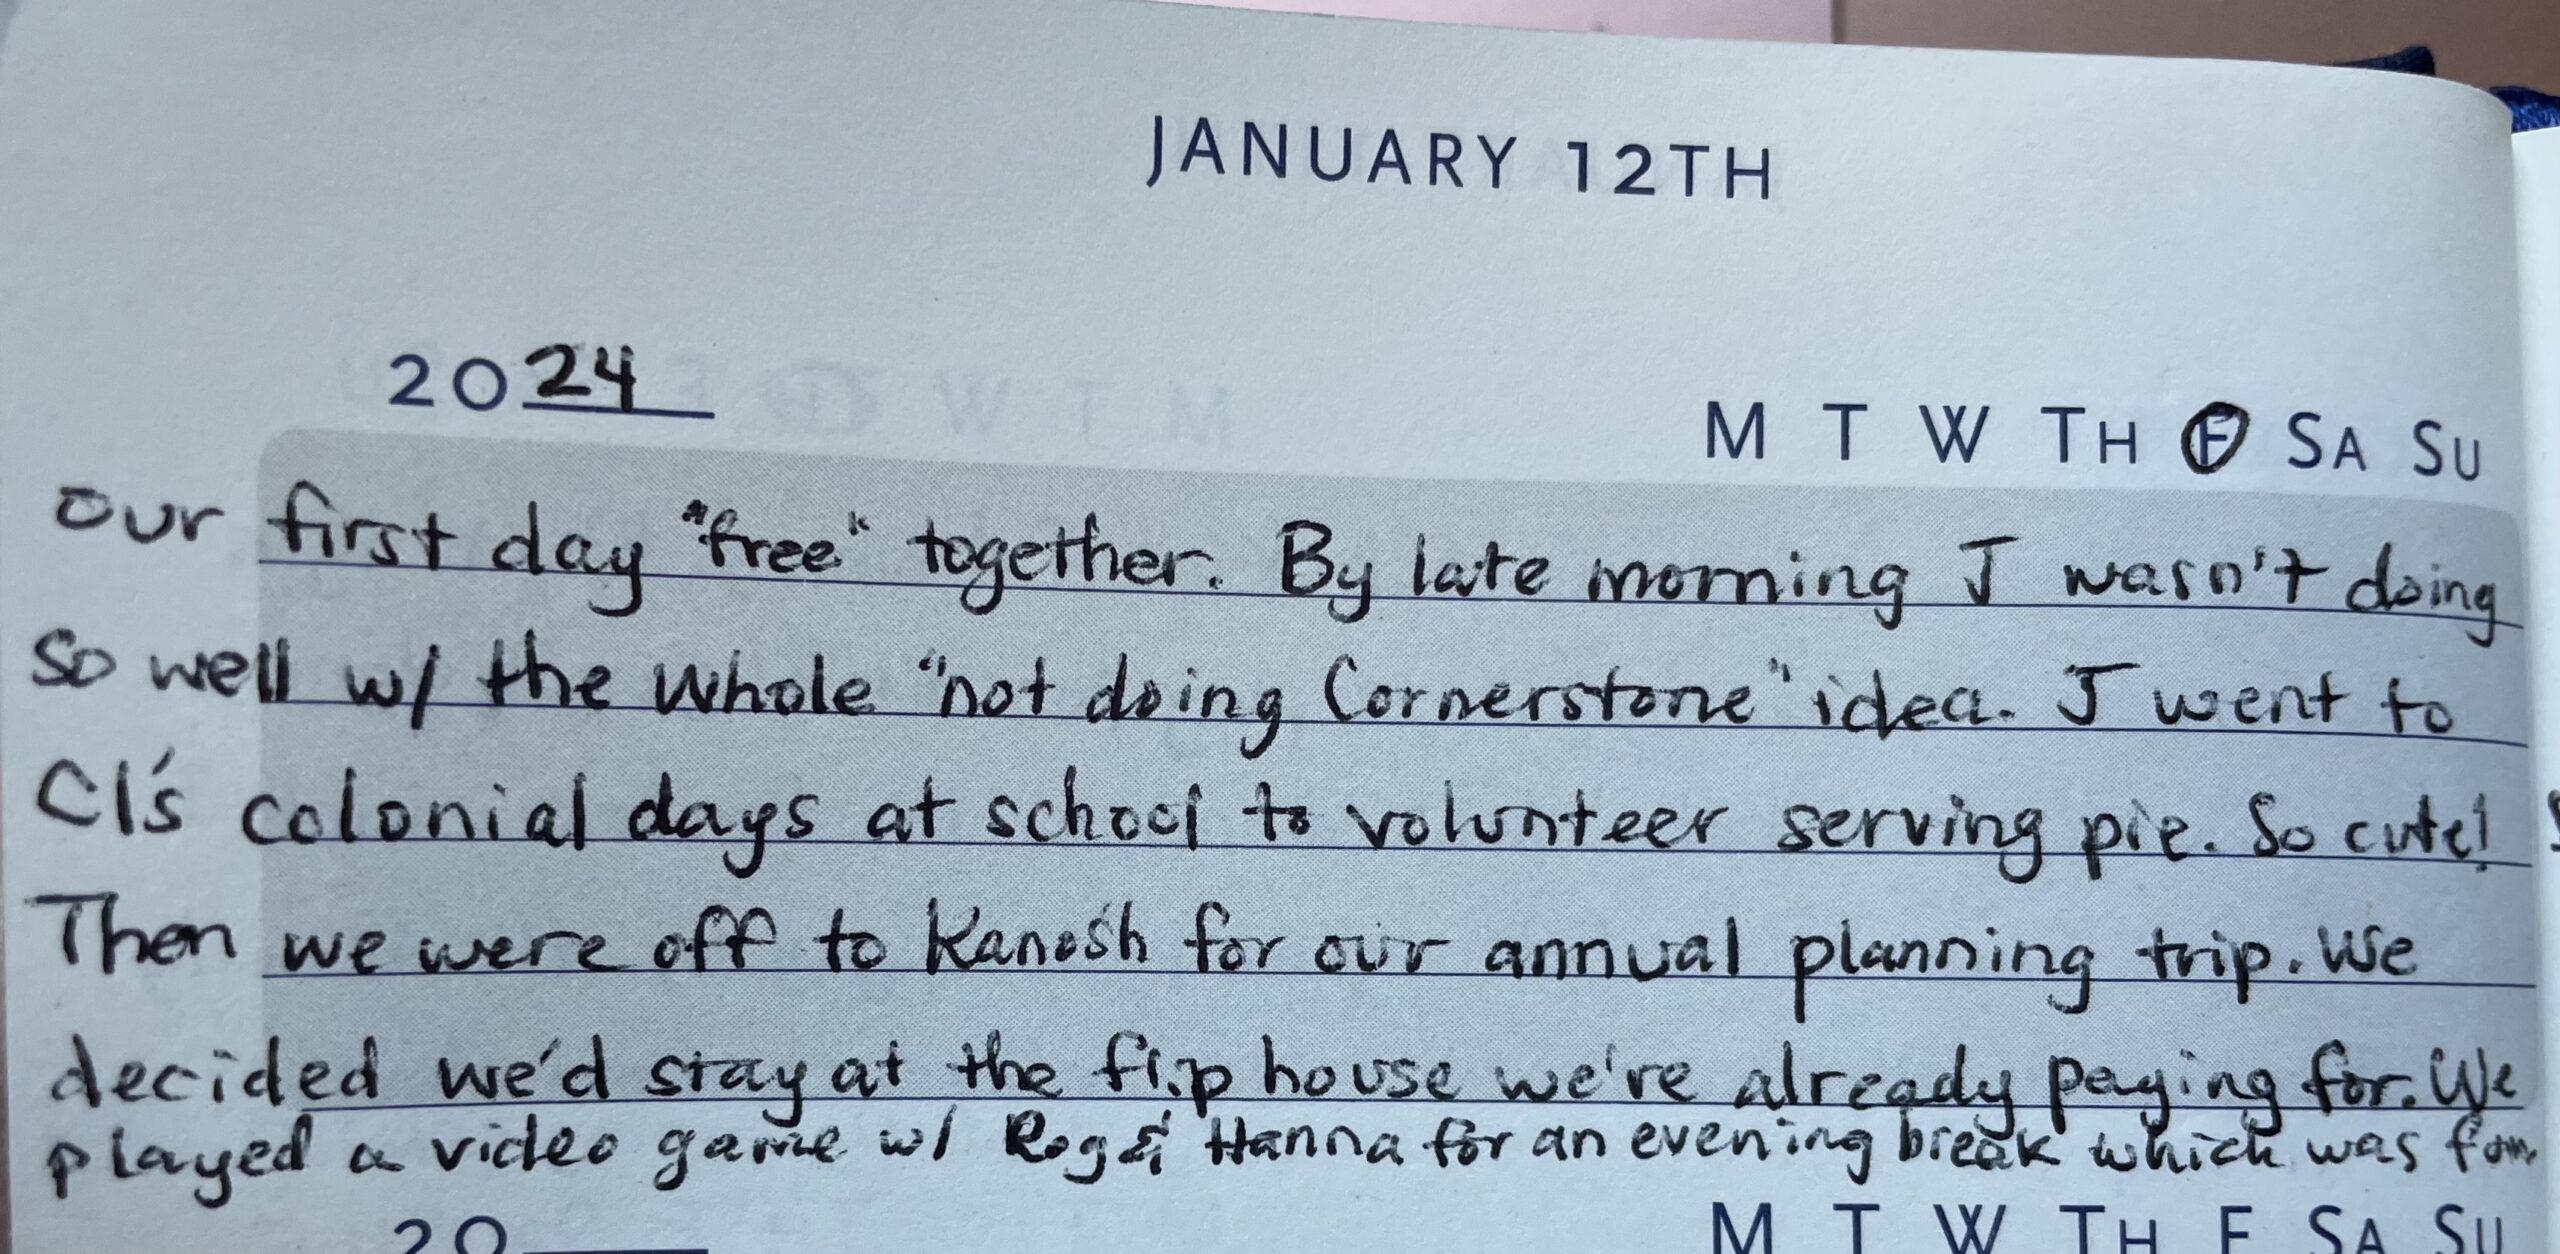 JANUARY 12TH
2024 M T W TH F SA SU
Our first day "free" together. By late morning J wasn't doing
so well w/ the whole "not doing Cornerstone" idea. J went to
Cl's colonial days at school to volunteer serving pie. So cute!
Then we were off to Kanosh for our annual planning trip. We
decided we'd stay at the flip house we're already paying for. We
played a video game w/ Rog & Hanna for an evening break which was fun.
20 M T W TH F SA SU